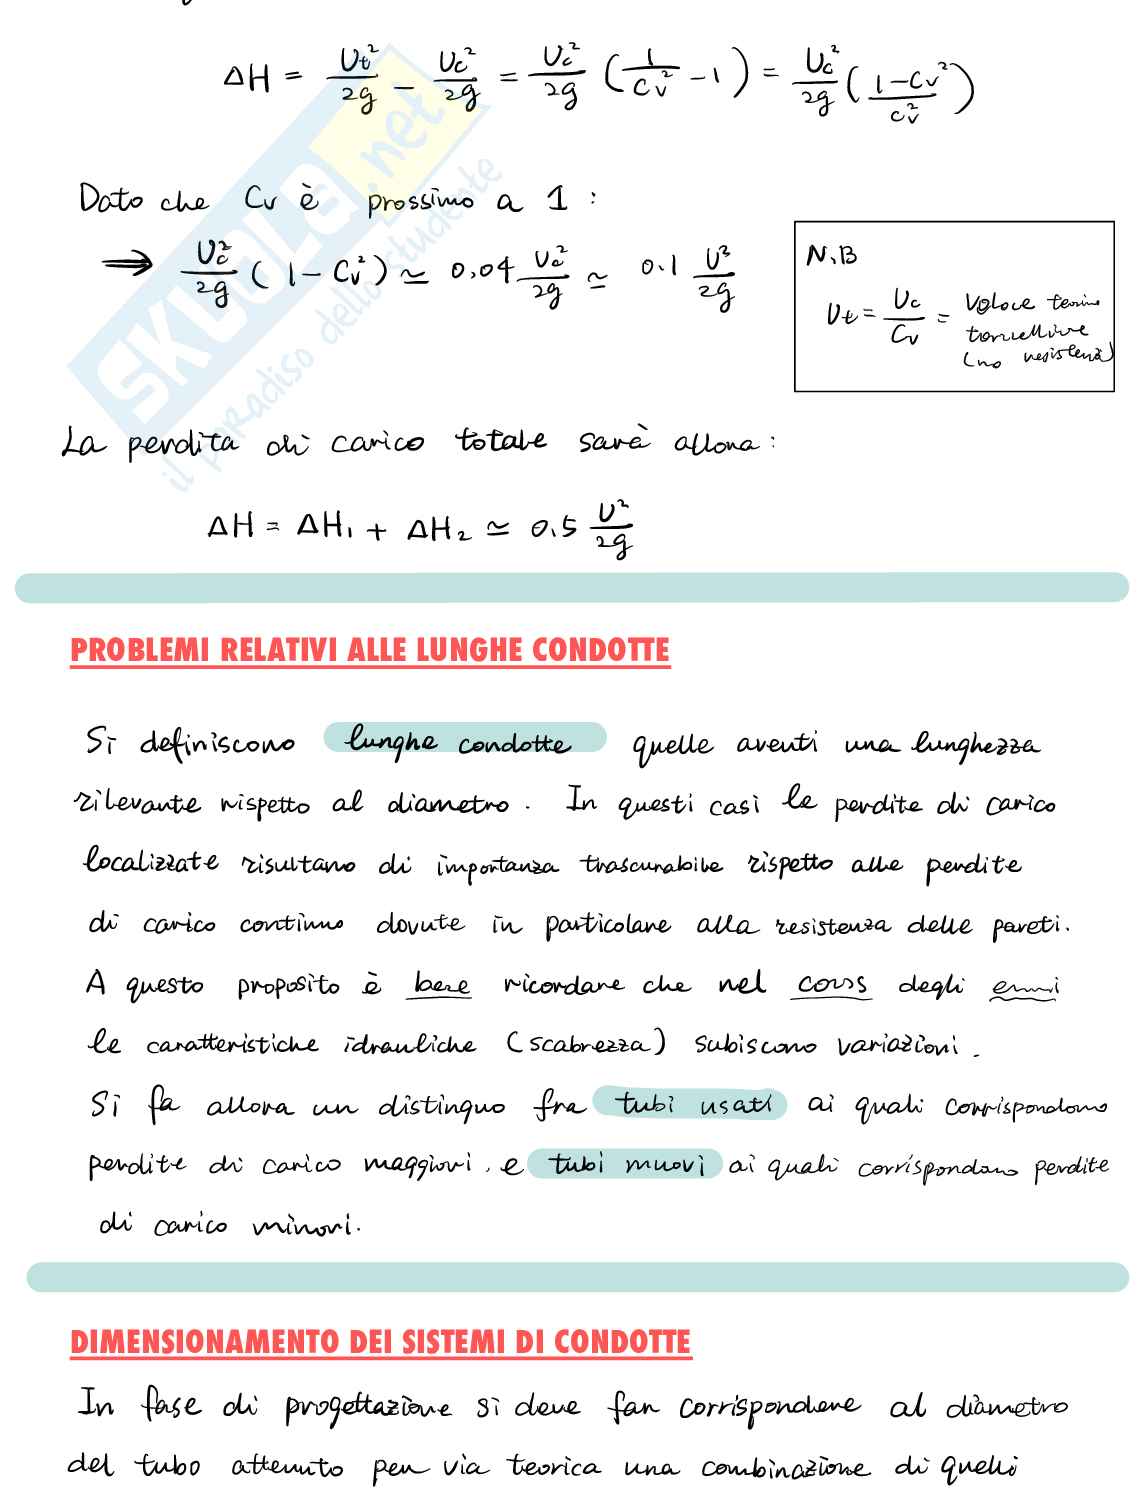 ΔH = Ut²/2g - Uc²/2g = Uc²/2g (1/Cv² - 1) = Uc²/2g (1-Cv²/cv²)
Dato che Cv è prossimo a 1 :
⇒ Uc²/2g ( 1 - Cv² ) ≃ 0.04 Uc²/2g ≃ 0.1 U²/2g
N.B
Ut = Uc/Cv = Veloce
torricelliana
(no resistenza)
La perdita di carico totale sarà allora :
ΔH = ΔH₁ + ΔH₂ ≃ 0.5 U²/2g
PROBLEMI RELATIVI ALLE LUNGHE CONDOTTE
Si definiscono lunghe condotte quelle aventi una lunghezza
rilevante rispetto al diametro. In questi casi le perdite di carico
localizzate risultano di importanza trascurabile rispetto alle perdite
di carico continuo dovute in particolare alla resistenza delle pareti.
A questo proposito è bene ricordare che nel corso degli anni
le caratteristiche idrauliche (scabrezza) subiscono variazioni.
Si fa allora un distinguo fra tubi usati ai quali corrispondono
perdite di carico maggiori, e tubi nuovi ai quali corrispondono perdite
di carico minori.
DIMENSIONAMENTO DEI SISTEMI DI CONDOTTE
In fase di progettazione si deve far corrispondere al diametro
del tubo ottenuto per via teorica una combinazione di quelli
SKUOLA.net
il paradiso dello studente